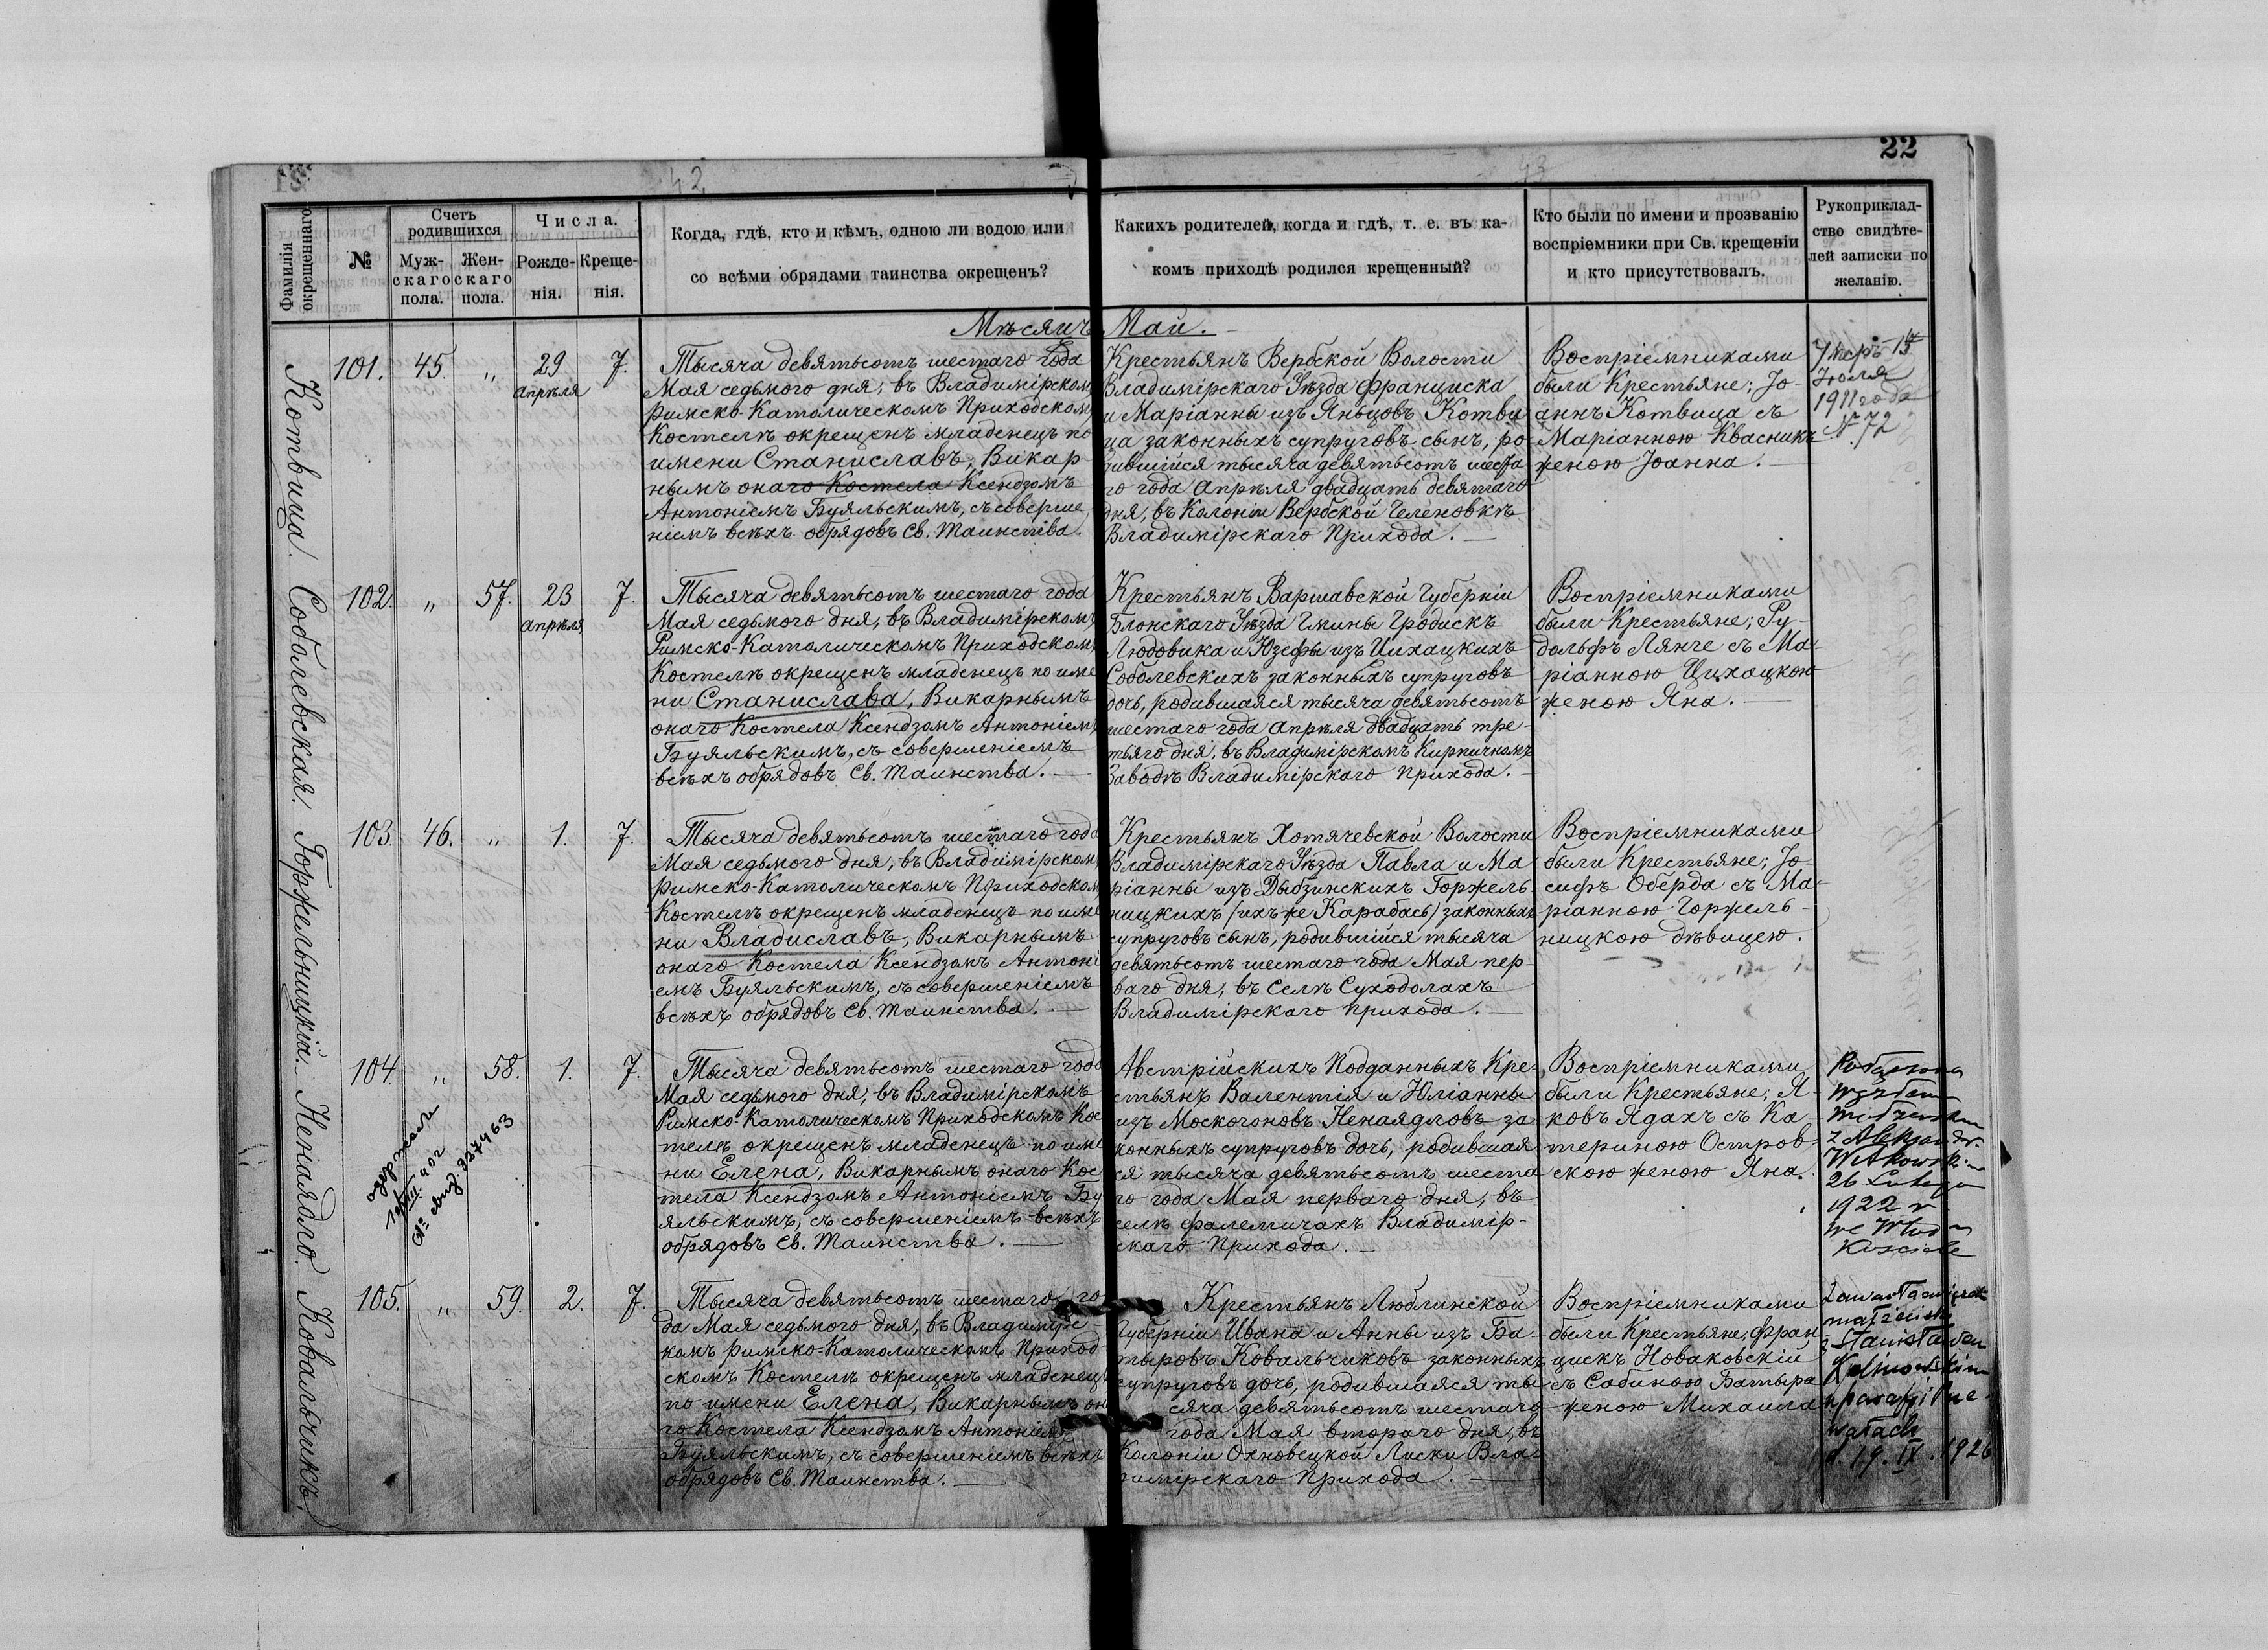 22
42
43
Фамилія окрещеннаго.
№
Счетъ родившихся
Мужскаго пола.
Женскаго пола.
Числа.
Рожденія.
Крещенія.
Когда, гдѣ, кто и кѣмъ, одною ли водою или
со всѣми обрядами таинства окрещенъ?
Какихъ родителей, когда и гдѣ, т. е. въ ка-
комъ приходѣ родился крещенный?
Кто были по имени и прозванію
воспріемники при Св. крещеніи
и кто присутствовалъ.
Рукоприклад-
ство свидѣте-
лей записки по
желанію.
Мѣсяцъ Май.
Котвица.
101. 45. „ 29 Апрѣля 7.
Тысяча девятьсотъ шестаго года
Мая седьмого дня, въ Владимірском
Римско-Католическомъ Приходском
Костелѣ окрещенъ младенецъ по
имени Станиславъ, Викар-
нымъ онаго Костела Ксендзомъ
Антоніемъ Буяльскимъ, съ соверше
ніемъ всѣхъ обрядовъ Св. Таинства.
Крестьянъ Вербской Волости
Владимірскаго Уѣзда Франциска
и Маріанны изъ Яньцовъ Котви
ца законныхъ супруговъ сынъ, ро
дившійся тысяча девятьсотъ шеста
го года Апрѣля двадцать девятаго
дня, въ Колоніи Вербской Челеновкѣ
Владимірскаго Прихода.
Воспріемниками
были Крестьяне; Іо-
аннъ Котвица съ
Маріанною Квасникъ
женою Іоанна.
Умеръ
Іюля
1911 года
№ 72
Соболевская.
102. „ 57. 23 Апрѣля 7.
Тысяча девятьсотъ шестаго года
Мая седьмого дня, въ Владимірскомъ
Римско-Католическомъ Приходском
Костелѣ окрещенъ младенецъ по име
ни Станислава, Викарнымъ
онаго Костела Ксендзомъ Антоніем
Буяльскимъ, съ совершеніемъ
всѣхъ обрядовъ Св. Таинства.
Крестьянъ Варшавской Губерніи
Блонскаго Уѣзда Гмины Гродискъ
Людовика и Юзефы изъ Цихацкихъ
Соболевскихъ законныхъ супруговъ
дочь, родившаяся тысяча девятьсотъ
шестаго года Апрѣля двадцать тре-
тьяго дня, въ Владимірскомъ Кирпичномъ
Заводѣ Владимірскаго прихода.
Воспріемниками
были Крестьяне; Ру-
дольфъ Лянге съ Ма-
ріанною Цихоцкою
женою Яна.
Горжельницкій.
103. 46. „ 1. 7.
Тысяча девятьсотъ шестаго года
Мая седьмого дня, въ Владимірском
Римско-Католическомъ Приходском
Костелѣ окрещенъ младенецъ по име
ни Владиславъ, Викарнымъ
онаго Костела Ксендзомъ Антоні
емъ Буяльскимъ, съ совершеніемъ
всѣхъ обрядовъ Св. Таинства.
Крестьянъ Хотячевской Волости
Владимірскаго Уѣзда Павла и Ма
ріанны изъ Дыбзинскихъ Горжель-
ницкихъ (ихъ же Карабась) законныхъ
супруговъ сынъ, родившійся тысяча
девятьсотъ шестаго года Мая пер-
ваго дня, въ Селѣ Суходолахъ
Владимірскаго прихода.
Воспріемниками
были Крестьяне; Іо-
сифъ Оберда съ Ма-
ріанною Горжель-
ницкою дѣвицею.
Ненаядло.
104. „ 58. 1. 7.
№ свид. 337463
Тысяча девятьсотъ шестаго года
Мая седьмого дня, въ Владимірскомъ
Римско-Католическомъ Приходскомъ Кос
телѣ окрещенъ младенецъ по име
ни Елена, Викарнымъ онаго Кос
тела Ксендзомъ Антоніемъ Бу
яльскимъ, съ совершеніемъ всѣхъ
обрядовъ Св. Таинства.
Австрійскихъ Подданныхъ Кре-
стьянъ Валентія и Юліанны
изъ Москогоновъ Ненаядловъ за
конныхъ супруговъ дочь, родившая
ся тысяча девятьсотъ шеста
го года Мая перваго дня, въ
селѣ Фалемичахъ Владимір-
скаго Прихода.
Воспріемниками
были Крестьяне; Я-
ковъ Ядахъ съ Ка-
териною Остров-
скою женою Яна.
z Aleksandr.
Witkowskim
26 Lutego
1922 r
we Włodz
Kościele
Ковальчикъ.
105. „ 59. 2. 7.
Тысяча девятьсотъ шестаго го
да Мая седьмого дня, въ Владимірс-
комъ Римско-Католическомъ Приход
скомъ Костелѣ окрещенъ младенец
по имени Елена, Викарнымъ она
го Костела Ксендзомъ Антоніемъ
Буяльскимъ, съ совершеніемъ всѣхъ
обрядовъ Св. Таинства.
Крестьянъ Люблинской
Губерніи Ивана и Анны изъ Ба-
тыровъ Ковальчиковъ законныхъ
супруговъ дочь, родившаяся ты
сяча девятьсотъ шестаго
года Мая второго дня, въ
Колоніи Охновецкой Лиски Вла
димірскаго Прихода.
Воспріемниками
были Крестьяне, Фран
цискъ Новаковскій
съ Сабиною Батыра
женою Михаила
Zawarła związek
małżeński
z Stanisławem
Kalinowskim
w parafji
d. 19. IX. 1926